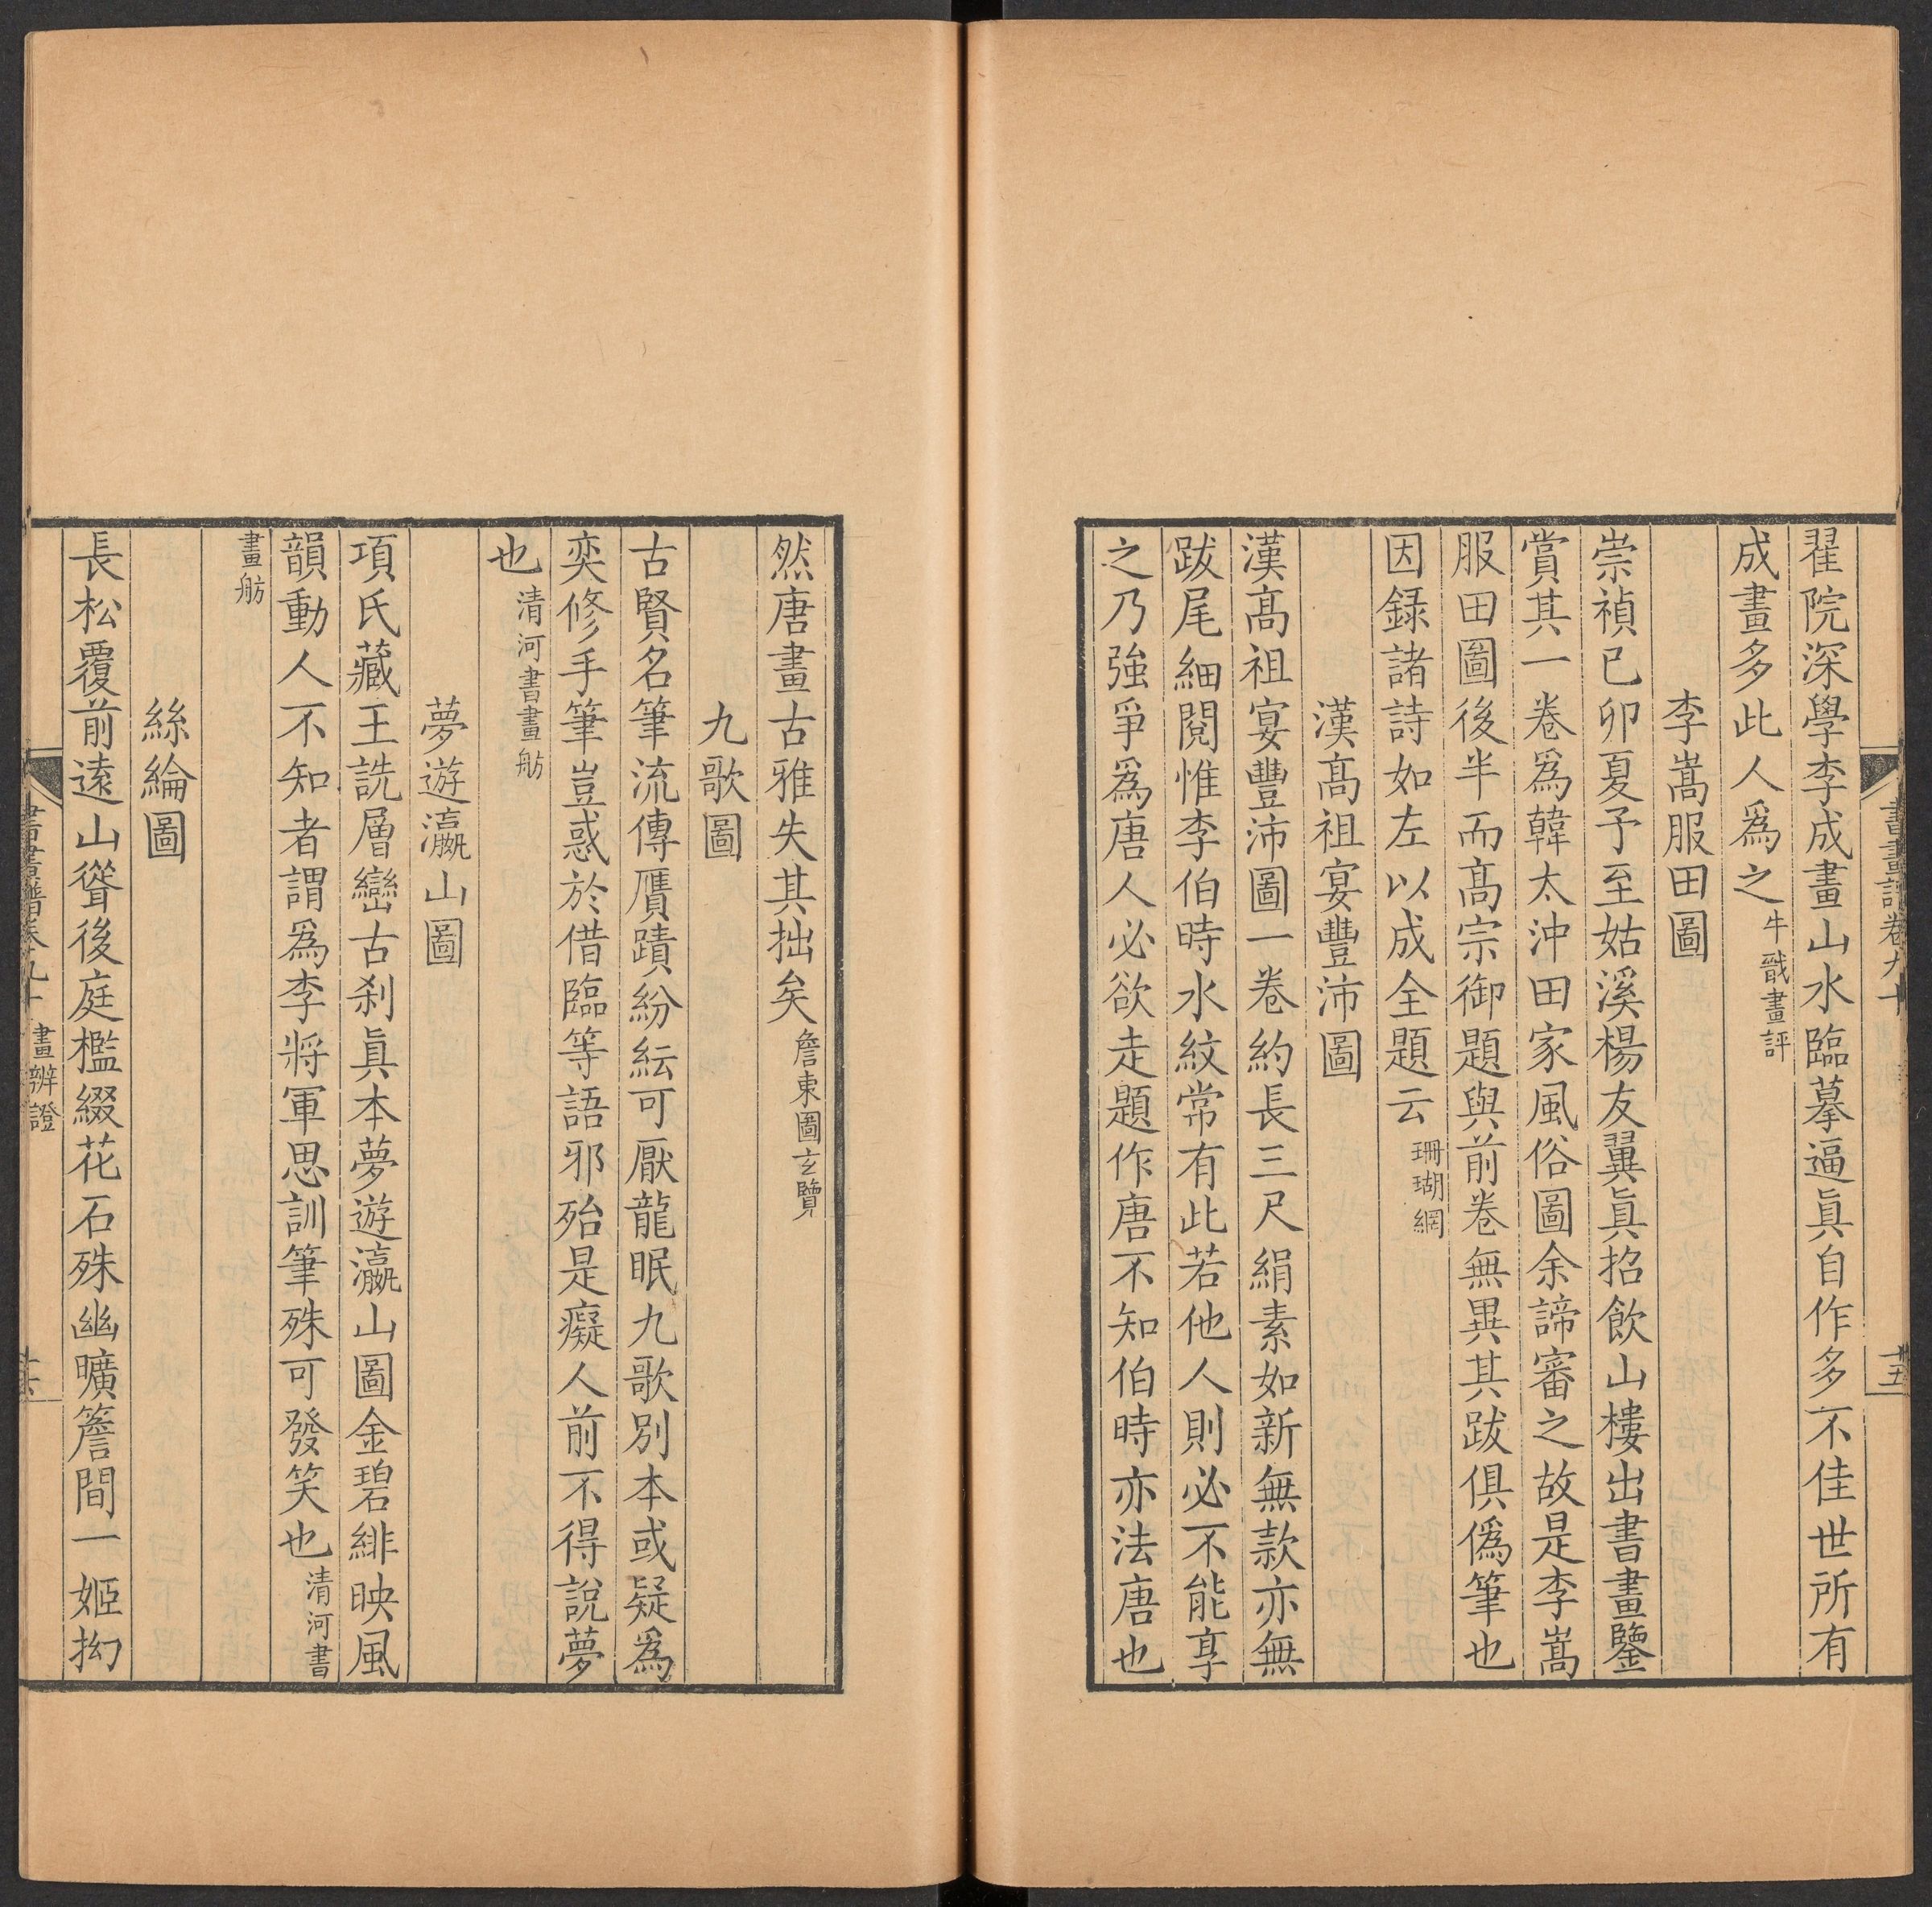 書畫譜卷九十
十五
翟院深學李成畫山水臨摹逼眞自作多不佳世所有
成畫多此人爲之牛戩畫評
李嵩服田圖
崇禎已卯夏予至姑溪楊友翼眞招飲山樓出書畫鑒
賞其一卷爲韓太沖田家風俗圖余諦審之故是李嵩
服田圖後半而髙宗御題與前卷無異其跋俱僞筆也
因録諸詩如左以成全題云珊瑚網
漢髙祖宴豐沛圖
漢髙祖宴豐沛圖一卷約長三尺絹素如新無款亦無
跋尾細閲惟李伯時水紋常有此若他人則必不能享
之乃強爭爲唐人必欲走題作唐不知伯時亦法唐也
然唐畫古雅失其拙矣詹東圖玄覽
九歌圖
古賢名筆流傳贋蹟紛紜可厭龍眠九歌別本或疑爲
奕修手筆豈惑於借臨等語邪殆是癡人前不得說夢
也清河書畫舫
夢遊瀛山圖
項氏藏王詵層巒古刹眞本夢遊瀛山圖金碧緋映風
韻動人不知者謂爲李將軍思訓筆殊可發笑也清河書
畫舫
絲綸圖
長松覆前遠山聳後庭檻綴花石殊幽曠簷間一姬抝
書畫譜卷九十
畫辨證
十六